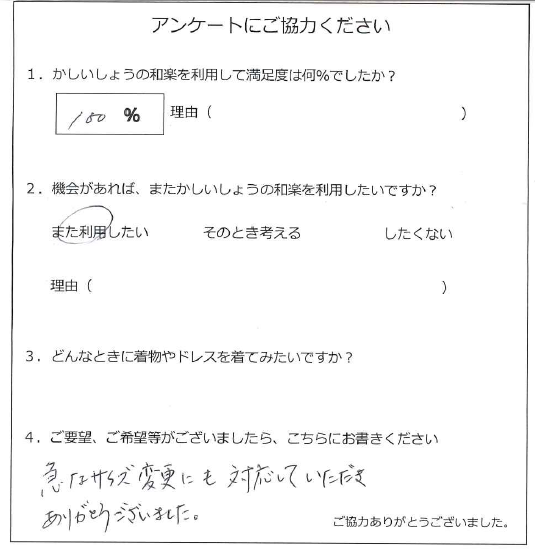 アンケートにご協力ください
1．かしいしょうの和楽を利用して満足度は何%でしたか？
100 % 理由（ ）
2．機会があれば、またかしいしょうの和楽を利用したいですか？
また利用したい そのとき考える したくない
理由（ ）
3．どんなときに着物やドレスを着てみたいですか？
4．ご要望、ご希望等がございましたら、こちらにお書きください
急なサイズ変更にも対応していただき
ありがとうございました。
ご協力ありがとうございました。